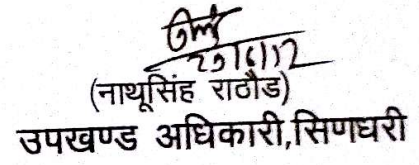 29/6/17
(नाथूसिंह राठौड)
उपखण्ड अधिकारी,सिणधरी